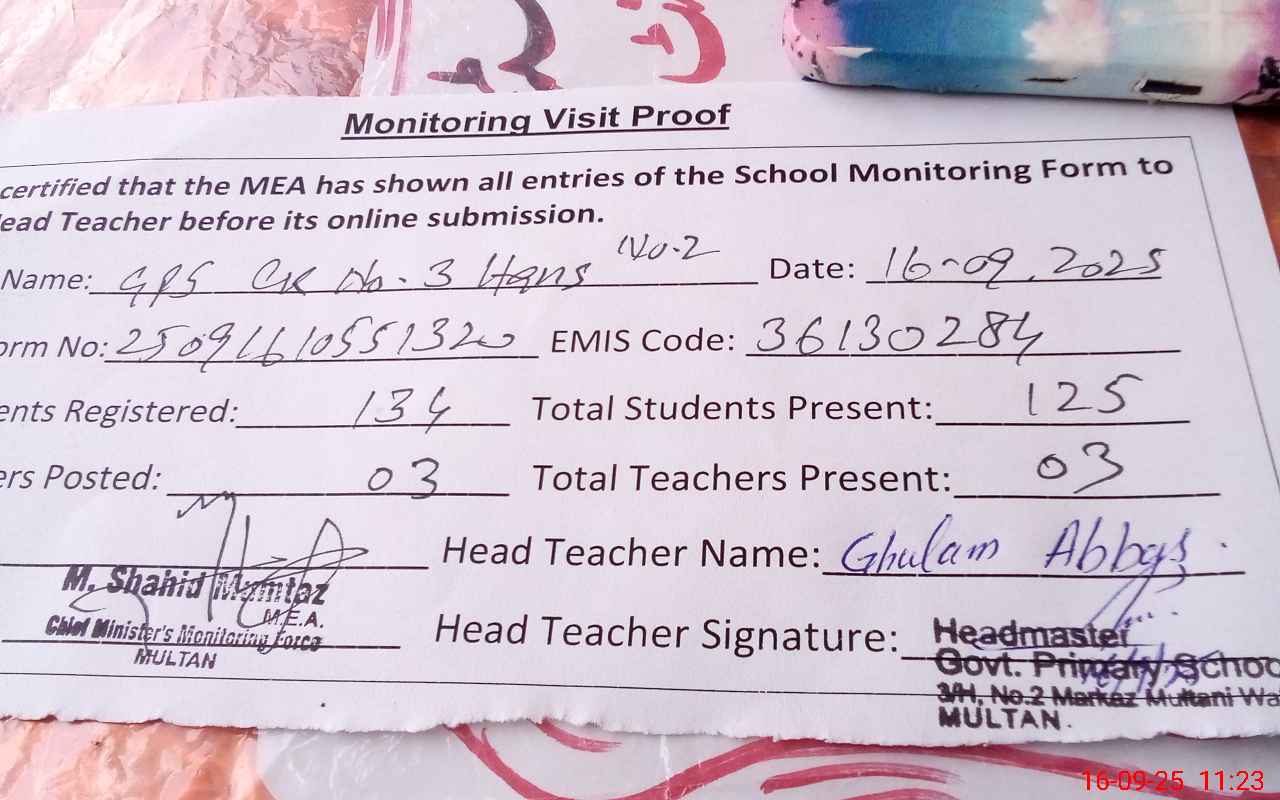 Monitoring Visit Proof
certified that the MEA has shown all entries of the School Monitoring Form to
ead Teacher before its online submission.
Name: GPS CK No. 3 Hans No.2 Date: 16-09.2025
orm No: 25091610551320 EMIS Code: 36130284
ents Registered: 134 Total Students Present: 125
ers Posted: 03 Total Teachers Present: 03
Head Teacher Name: Ghulam Abbas.
M. Shahid Mumtaz
M.E.A.
Chief Minister's Monitoring Force
MULTAN
Head Teacher Signature:
Headmaster
Govt. Primary Schoo
3/H, No.2 Markaz Multani Wa
MULTAN.
16-09-25 11:23